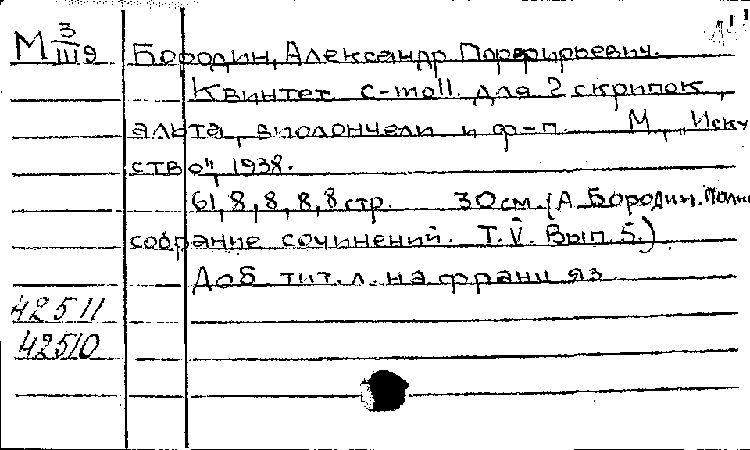 М 3/III9 Бородин, Александр Порфирьевич.
Квинтет c-moll для 2 скрипок,
альта, виолончели и ф-п. М., „Иску
ство", 1938.
61, 8, 8, 8, 8 стр. 30см. (А. Бородин. Полн
собрание сочинений. Т. V. Вып. 5.)
Доб. тит. л. на франц яз
42511
42510